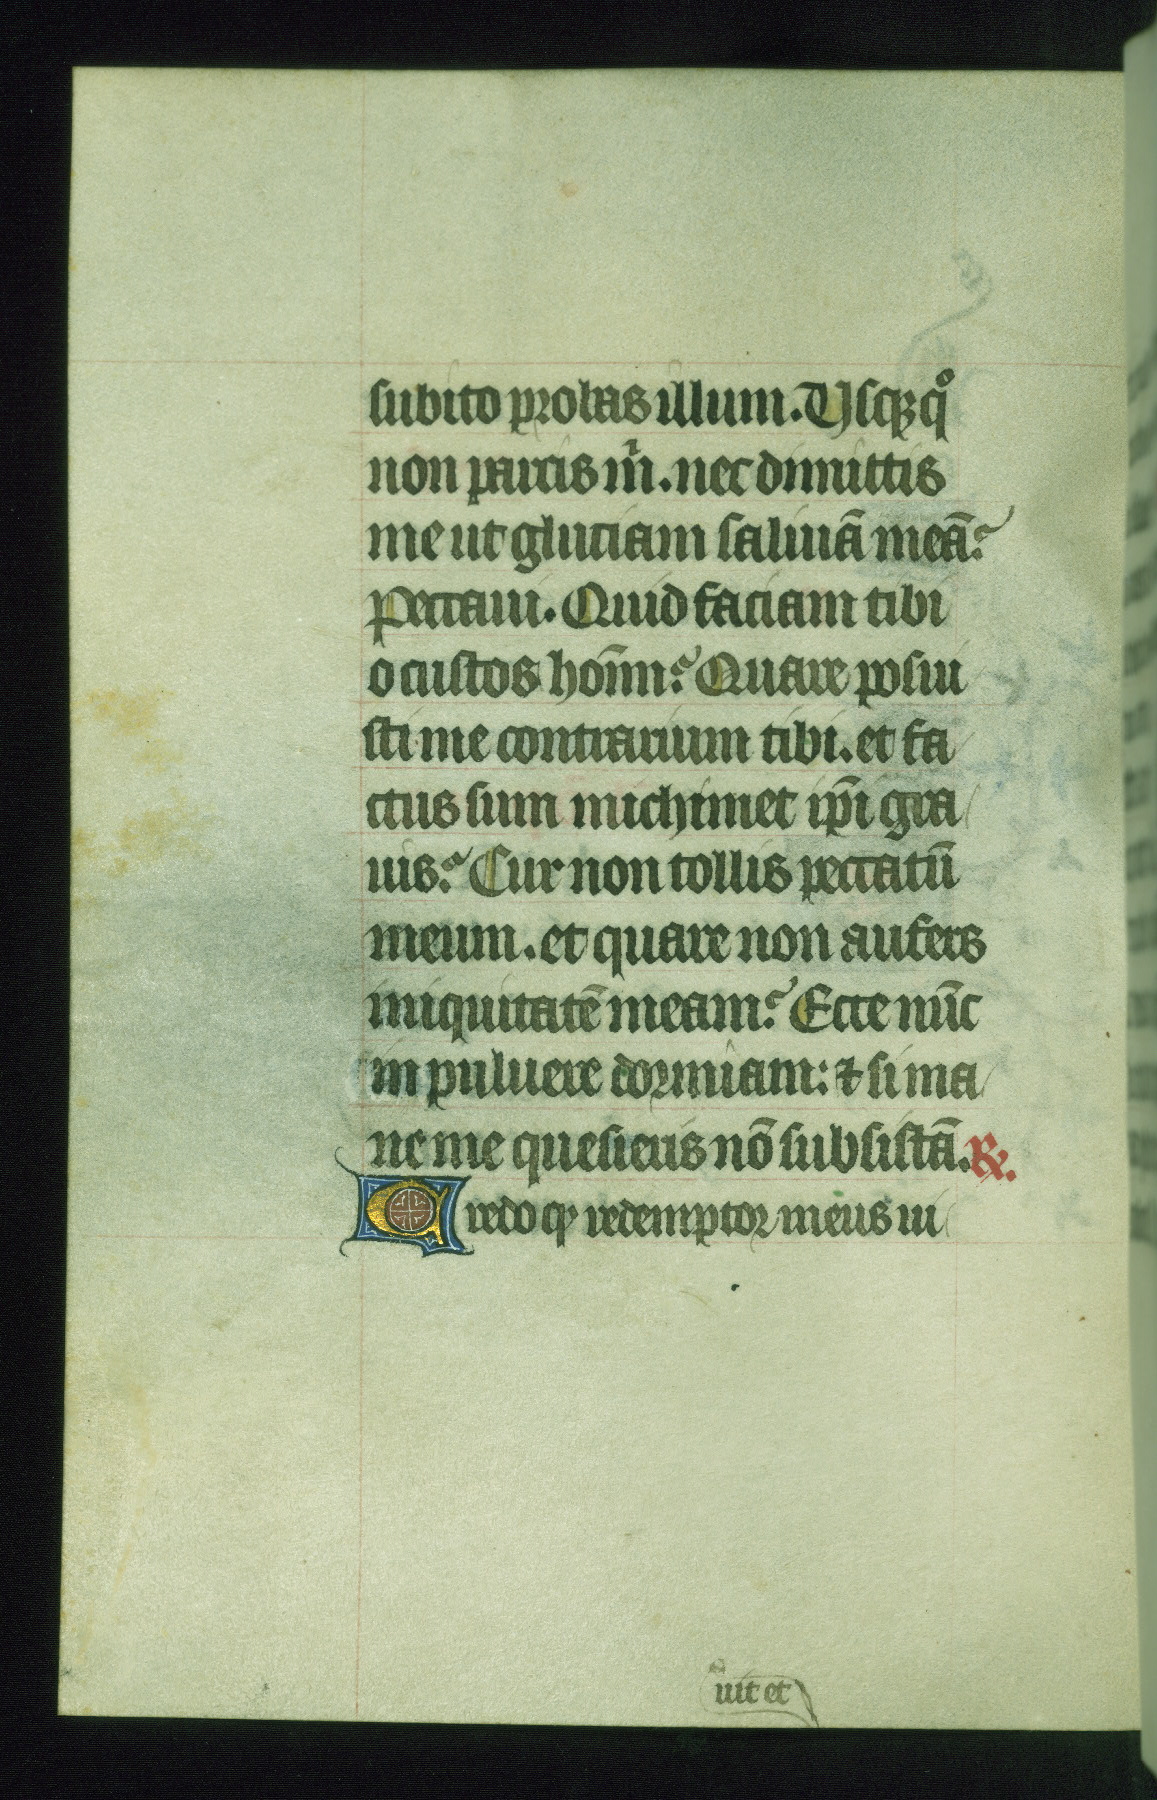 subito probas illum. Usqꝫ qͦ
non parcis m̄. nec dimittis
me ut glutiam saliuā meā?
Peccaui. Quid faciam tibi
o custos hoīm? Quare posui
sti me contrarium tibi. et fa
ctus sum michimet ip̄i gra
uis? Cur non tollis peccatū
meum. et quare non aufers
iniquitatē meam? Ecce nūc
in puluere dormiam: ⁊ si ma
ne me quesieris nō subsistā. ℟.
Credo ꝙ redemptor meus ui
uit et